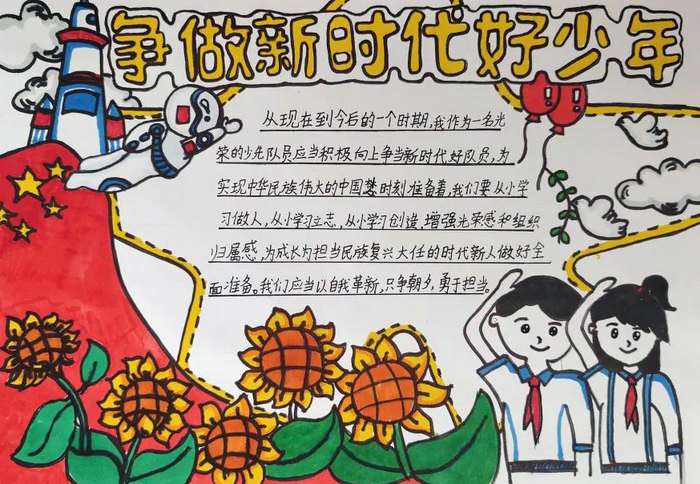 争做新时代好少年
从现在到今后的一个时期,我作为一名光
荣的少先队员应当积极向上争当新时代好队员,为
实现中华民族伟大的中国梦时刻准备着,我们要从小学
习做人,从小学习立志,从小学习创造,增强光荣感和组织
归属感,为成长为担当民族复兴大任的时代新人做好全
面准备。我们应当以自我革新,只争朝夕,勇于担当。